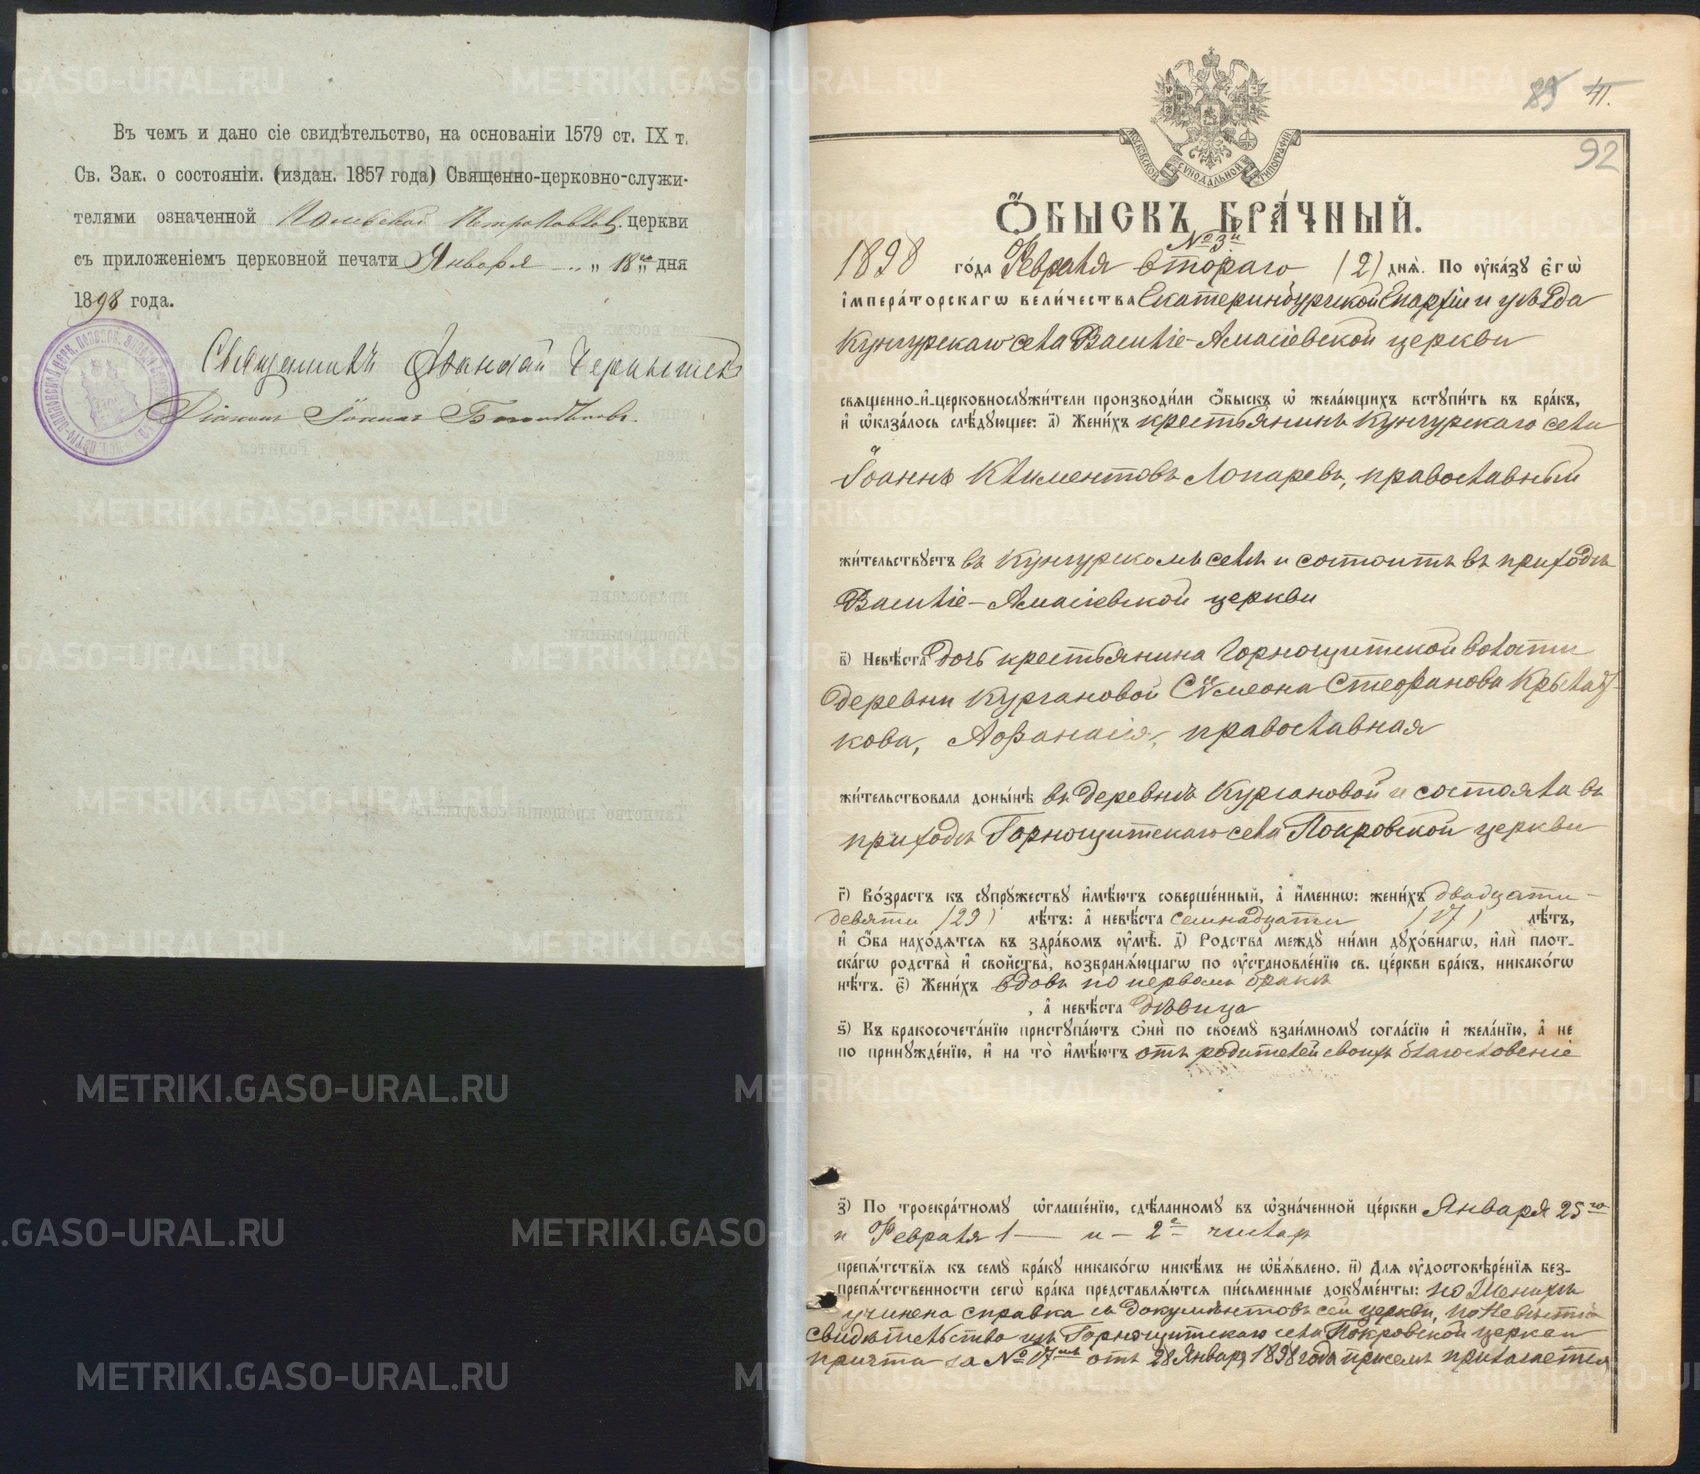 Въ чемъ и дано сіе свидѣтельство, на основаніи 1579 ст. IX т.
Св. Зак. о состояніи. (издан. 1857 года) Священно-церковно-служи-
телями означенной Полевской Петропавлов. церкви
съ приложеніемъ церковной печати Января „ 18го дня
1898 года.
Священникъ
Діаконъ Іоаннъ
83 41.
92
МОСКОВСКОЙ СѴНОДАЛЬНОЙ ТИПОГРАФІИ
Ѻ҆БЫСКЪ БРА́ЧНЫЙ.
№ 3й
1898 го́да Февраля втораго (2) днѧ̀. По ᲂу҆ка́зꙋ є҆гѡ̀
і҆мпера́торскагѡ вели́чества Екатеринбургской Епархіи и уѣзда
Кунгурскаго села Василіе-Амасіевской церкви
свѧщенно-и҆-церковнослꙋжи́тели производи́ли ѻ҆́быскъ ѡ҆ жела́ющихъ встꙋпи́ть въ бра́къ,
и҆ ѡ҆каза́лось слѣ́дꙋющее: а҃) Жени́хъ крестьянинъ Кунгурскаго села
Іоаннъ Климентовъ Лопаревъ, православный
жи́тельствꙋетъ въ Кунгурскомъ селѣ и состоитъ въ приходѣ
Василіе-Амасіевской церкви
в҃) Невѣ́ста дочь крестьянина Горнощитской волости
деревни Кургановой Сѵмеона Стефанова Крылат-
кова, Афанасія, православная
жи́тельствовала доны́нѣ въ деревнѣ Кургановой и состояла въ
приходѣ Горнощитскаго села Покровской церкви
г҃) Во́зрастъ къ сꙋпрꙋ́жествꙋ и҆мѣ́ютъ соверше́нный, а҆ и҆́меннѡ: жени́хъ двадцати-
девяти (29) лѣ́тъ: а҆ невѣ́ста семнадцати (17) лѣ́тъ,
и҆ ѻ҆́ба нахо́дѧтсѧ въ здра́вомъ ᲂу҆мѣ̀. д҃) Родства̀ междꙋ̀ ни́ми дꙋхо́внагѡ, и҆лѝ пло́т-
скагѡ родства̀ и҆ сво́йства, возбранѧ́ющагѡ по ᲂу҆становле́нїю св. це́ркви бра́къ, никако́гѡ
нѣ́тъ. є҃) Жени́хъ вдовъ по первомъ бракѣ
, а҆ невѣ́ста дѣвица
ѕ҃) Къ бракосочета́нїю пристꙋпа́ютъ ѻ҆нѝ по своемꙋ̀ взаи́мномꙋ согла́сїю и҆ жела́нїю, а҆ не
по принꙋжде́нїю, и҆ на то̀ и҆мѣ́ютъ отъ родителей своихъ благословеніе
з҃) По троекра́тномꙋ ѡ҆глаше́нїю, сдѣ́ланномꙋ въ ѡ҆зна́ченной це́ркви Января 25го
и Февраля 1 — и — 2го числах
препѧ́тствїѧ къ семꙋ̀ бра́кꙋ никако́гѡ никѣ́мъ не ѡ҆б̾ѧ́влено. и҃) Длѧ ᲂу҆достовѣ́ренїѧ без-
препѧ́тственности сегѡ̀ бра́ка представлѧ́ютсѧ пи́сьменные докꙋме́нты: по Женихѣ
учинена справка съ документовъ сей церкви, по невѣстѣ
свидѣтельство изъ Горнощитскаго села Покровской церкви
причта за № 17мъ отъ 28 Января 1898 года присемъ прилагается